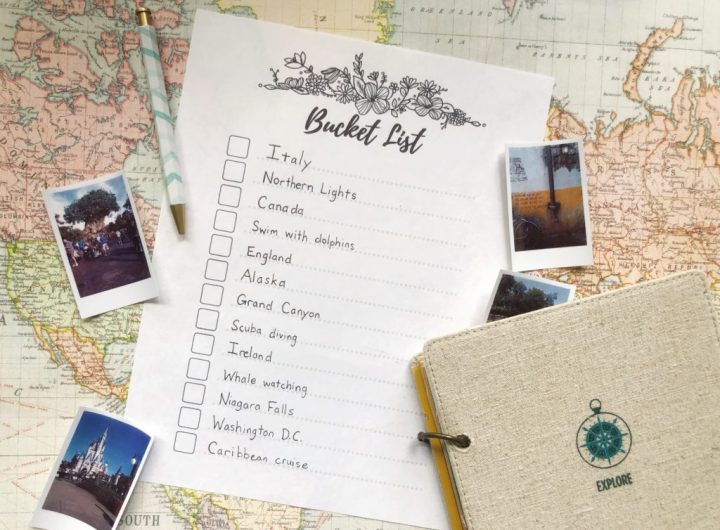 Bucket List
Italy
Northern Lights
Canada
Swim with dolphins
England
Alaska
Grand Canyon
Scuba diving
Ireland
Whale watching
Niagara Falls
Washington D.C.
Caribbean cruise
EXPLORE
GREENLAND
SEA
BARENTS SEA
KARA
SEA
SOUTH